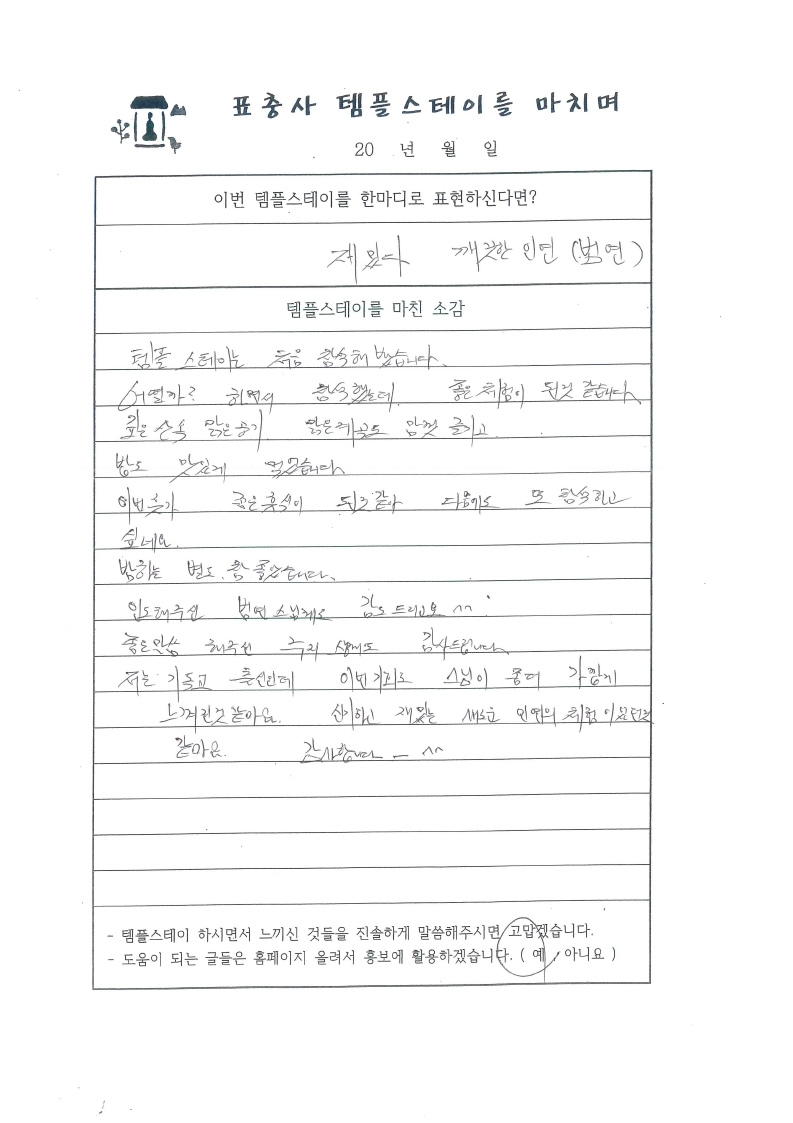 표충사 템플스테이를 마치며
20 년 월 일
이번 템플스테이를 한마디로 표현하신다면?
재밌다 깨끗한 인연 (범연)
템플스테이를 마친 소감
템플 스테이는 처음 참석해 봤습니다.
어떨까? 하면서 참석했는데 좋은 체험이 된것 같습니다.
깊은 산속 맑은공기. 맑은계곡도 맘껏 즐기고.
밥도 맛있게 먹었습니다
이번 휴가 좋은휴식이 된것 같아 다음에도 또 참석하고
싶네요.
밤하늘 별도. 참 좋았습니다.
인도해주신 범연스님께도 감사드리고요 ^^
좋은말씀 해주신 주지 스님께도 감사드립니다
저는 기독교 출신인데 이번기회로 스님이 좀더 가깝게
느껴진것 같아요. 신기하고 재밌는 새로운 인연의 체험이었던것
같아요. 감사합니다 ㅡ ^^
- 템플스테이 하시면서 느끼신 것들을 진솔하게 말씀해주시면 고맙겠습니다.
- 도움이 되는 글들은 홈페이지 올려서 홍보에 활용하겠습니다. ( 예 , 아니요 )